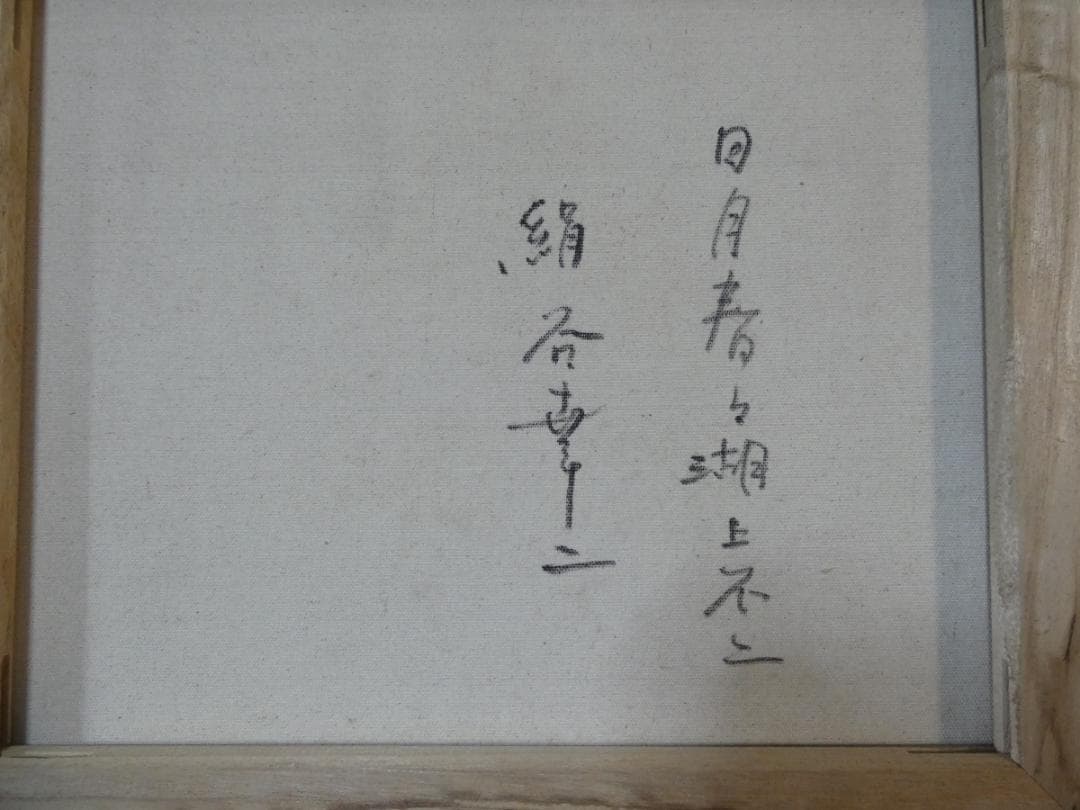 日月春々湖上不二
絹谷幸二